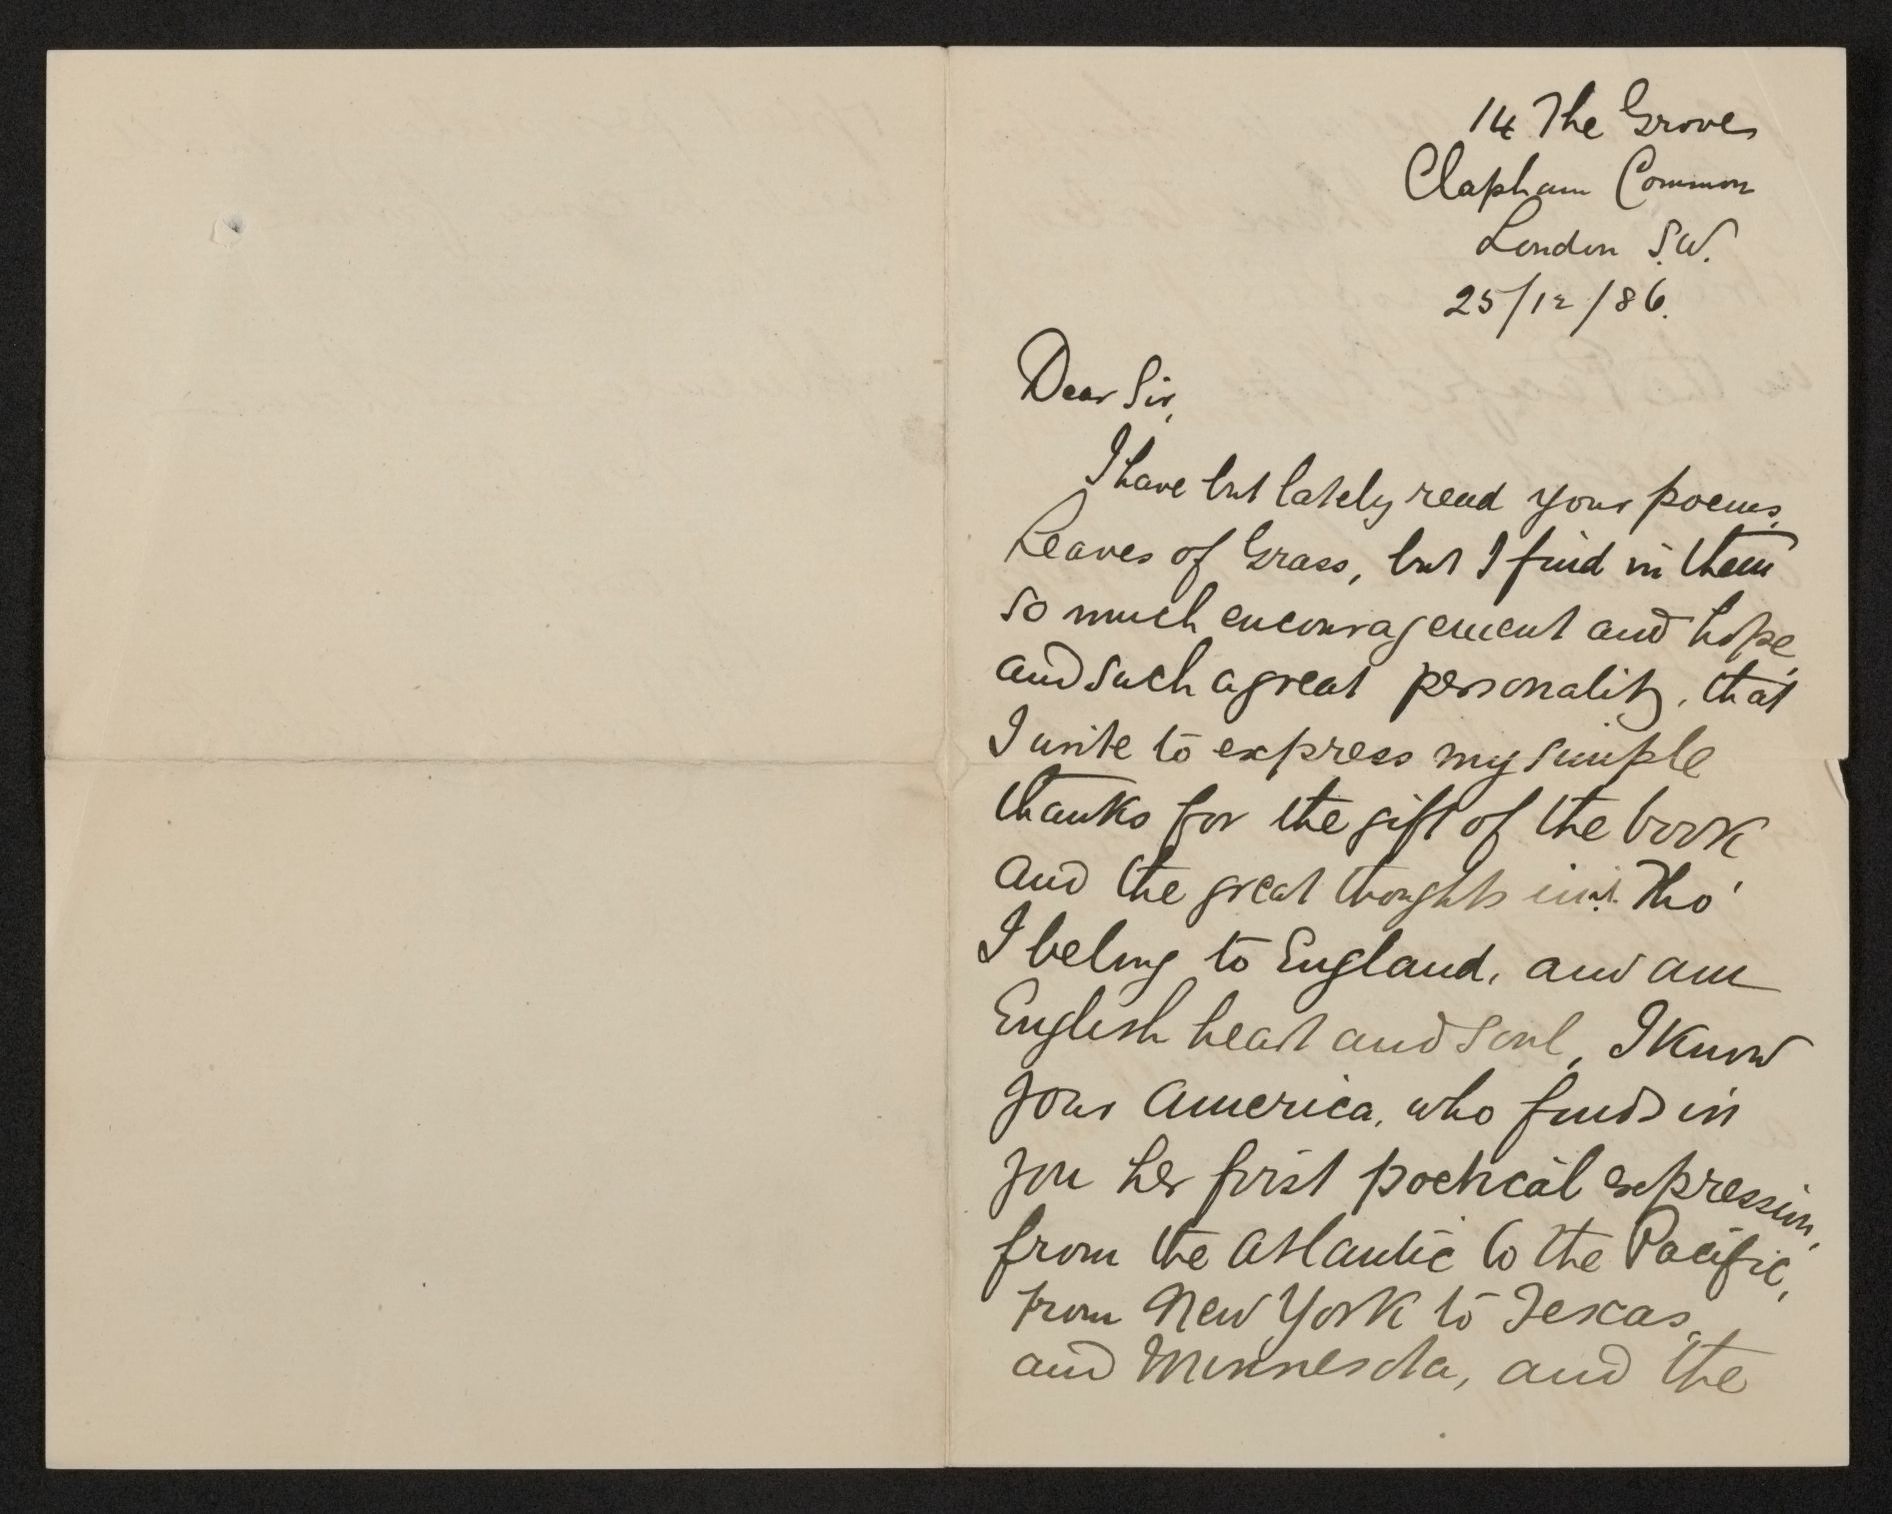 14 The Grove,
Clapham Common
London S.W.
25/12/86.
Dear Sir,
I have but lately read your poems,
Leaves of Grass, but I find in them
so much encouragement and hope,
and such a great personality, that
I write to express my simple
thanks for the gift of the book
and the great thoughts in it. Tho'
I belong to England, and am
English heart and soul, I know
your America, who finds in
you her first poetical expression,
from the Atlantic to the Pacific,
from New York to Texas,
and Minnesota, and the